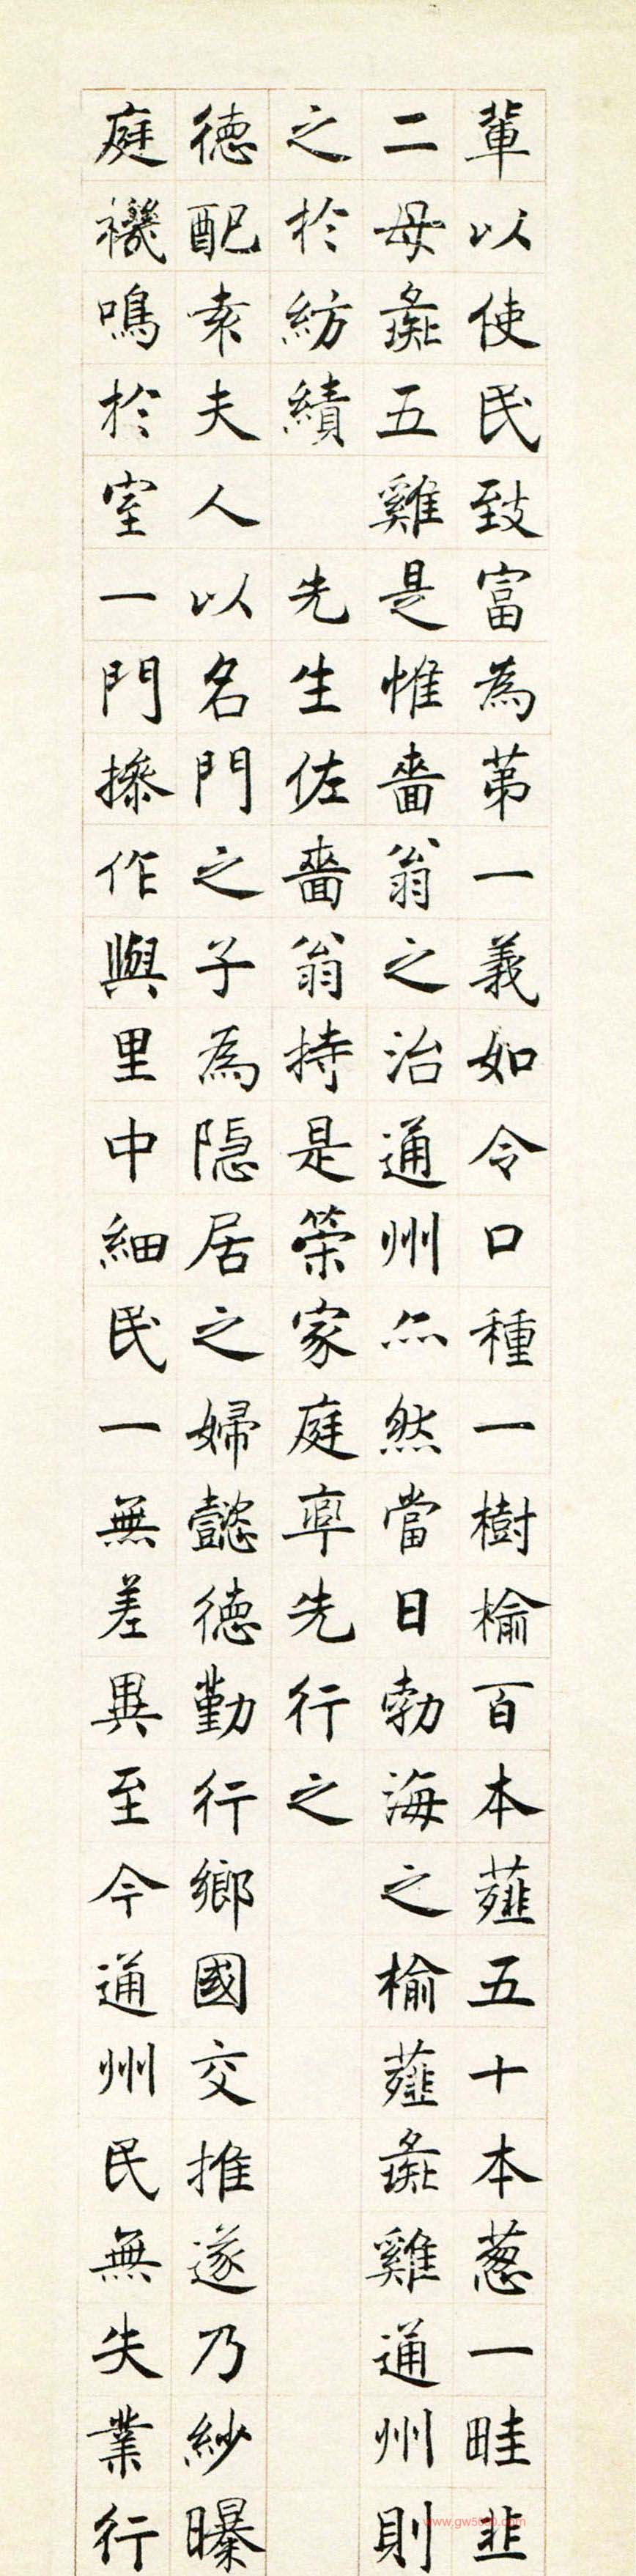 輩以使民致富為苐一義如令口種一樹榆百本薤五十本葱一畦韭
二母彘五雞是惟嗇翁之治通州亦然當日勃海之榆薤彘雞通州則
之於紡績 先生佐嗇翁持是策家庭率先行之
德配袁夫人以名門之子為隱居之婦懿德勤行鄉國交推遂乃紗曝
庭機鳴於室一門操作與里中細民一無差異至今通州民無失業行